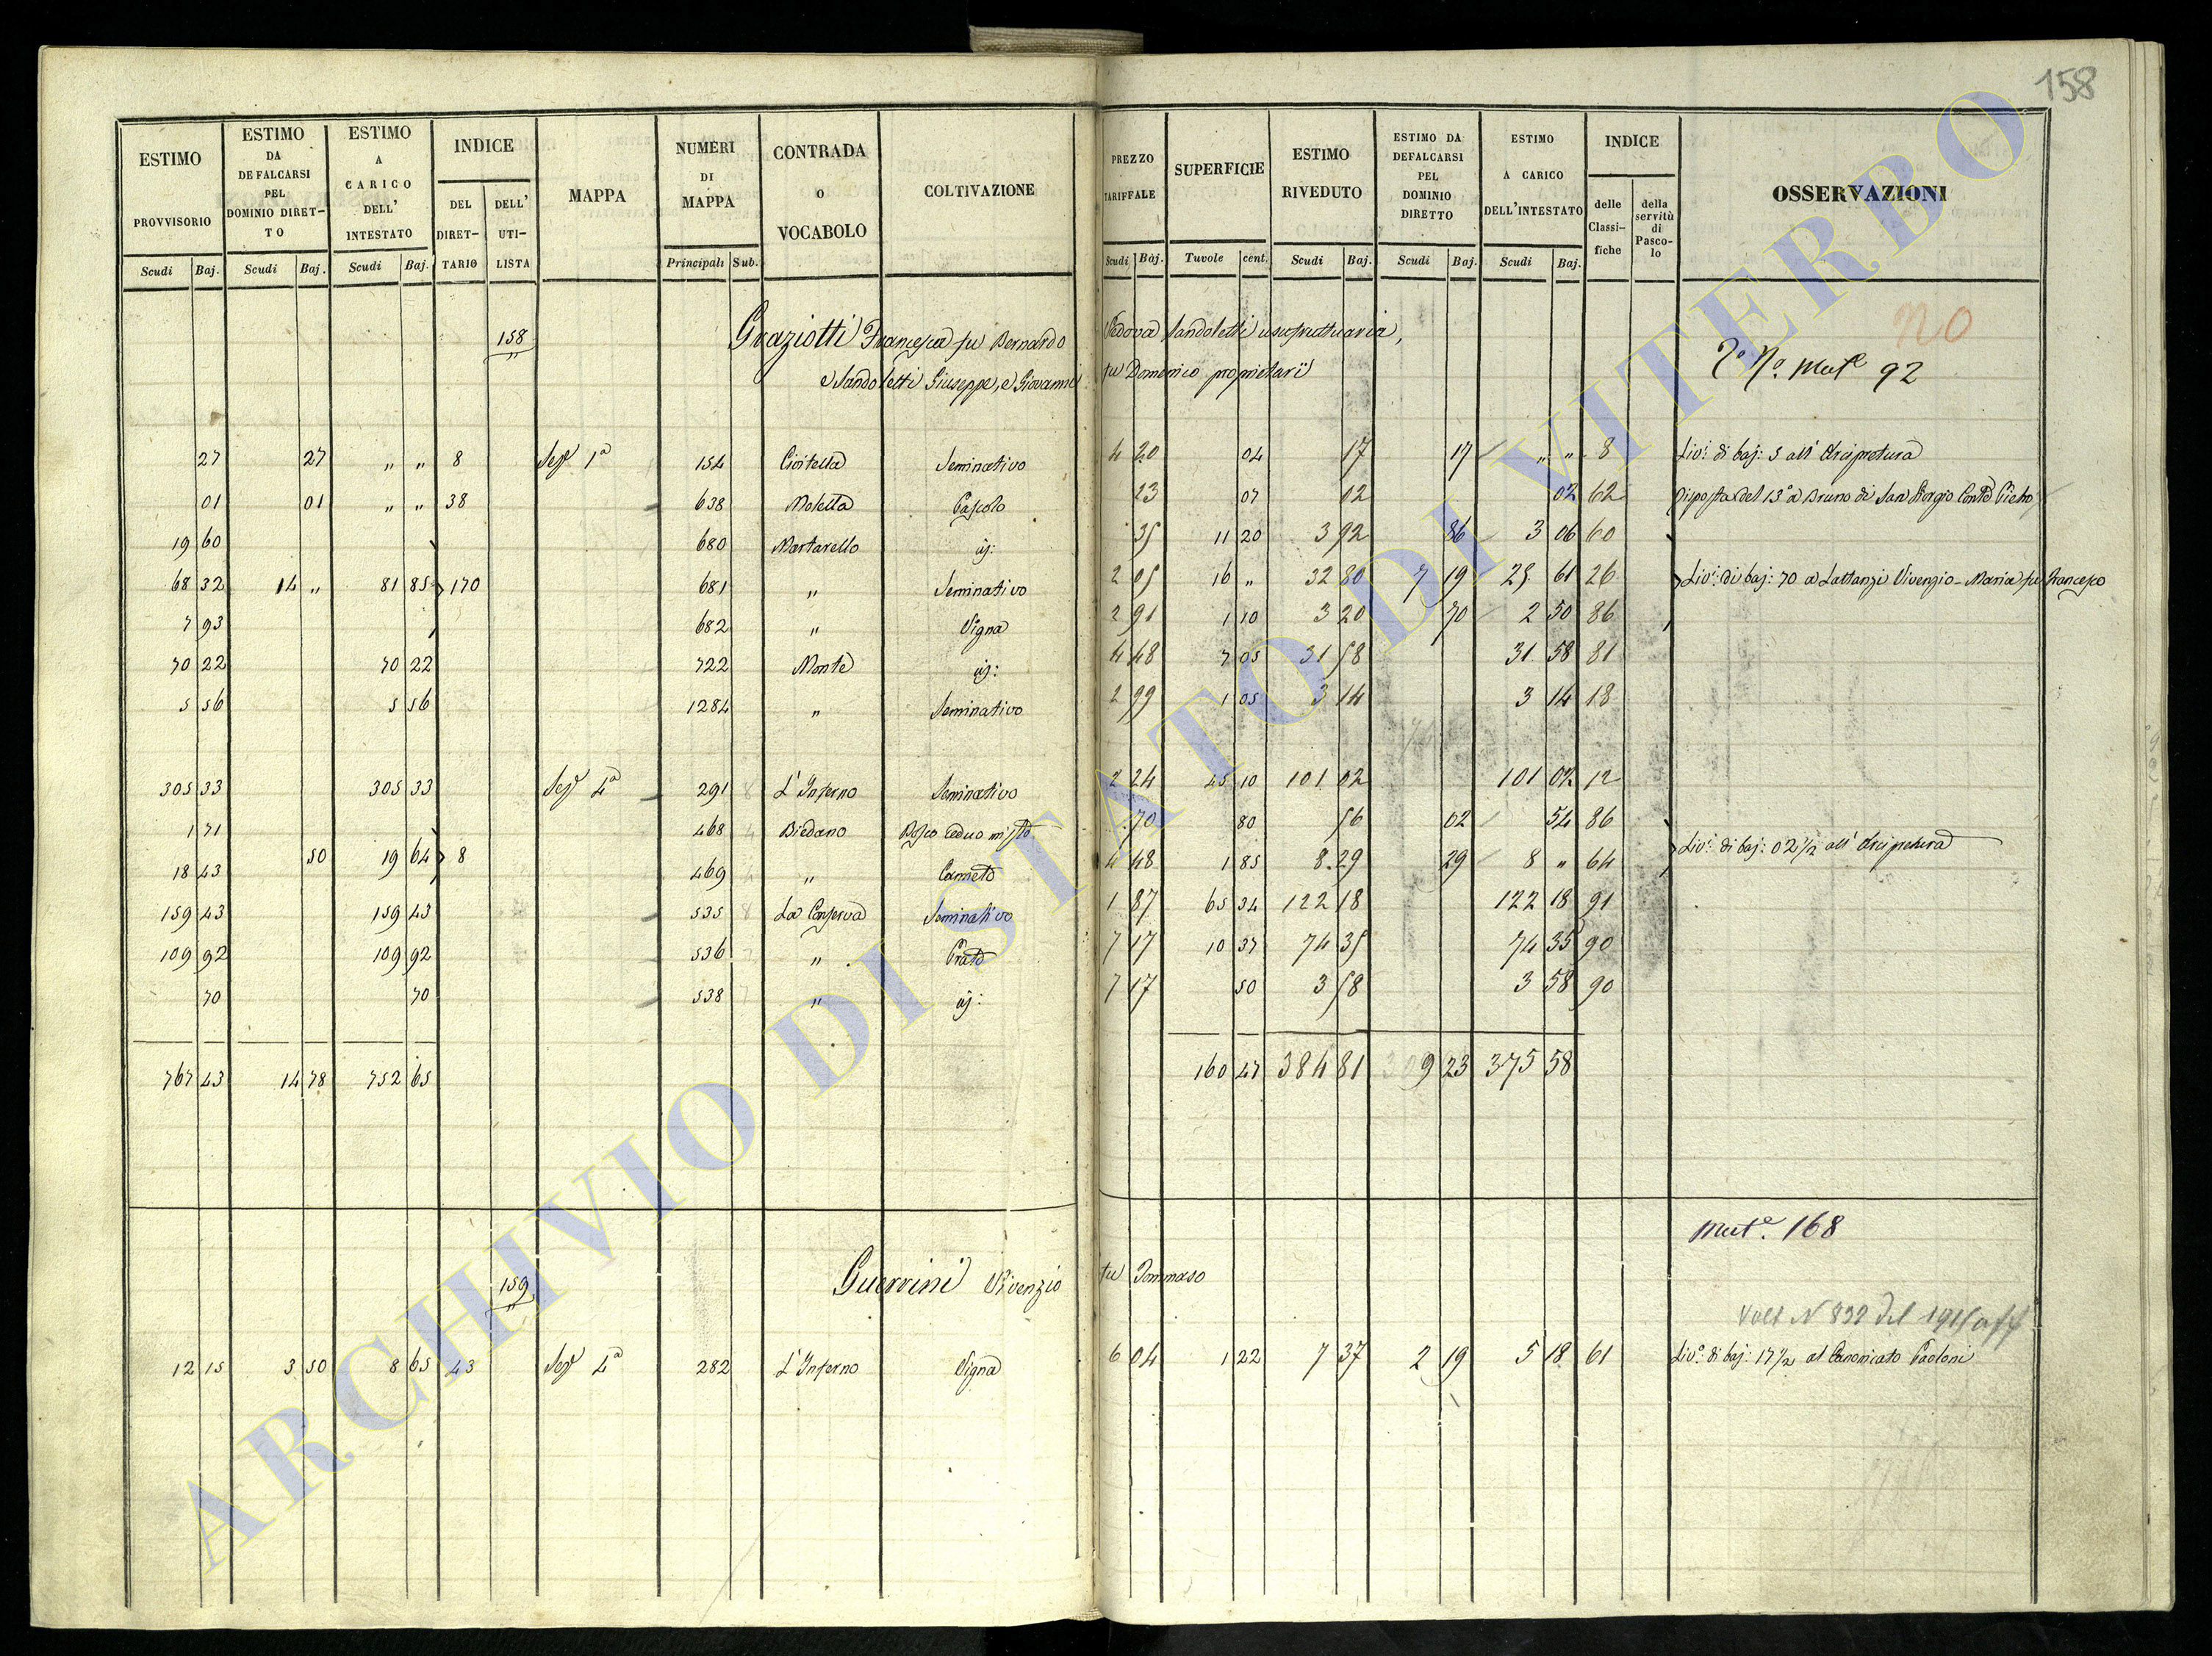 158
ESTIMO PROVVISORIO Scudi Baj.
ESTIMO DA DEFALCARSI PEL DOMINIO DIRET-TO Scudi Baj.
ESTIMO A CARICO DELL' INTESTATO Scudi Baj.
INDICE DEL DIRET-TARIO DELL' UTI-LISTA
MAPPA
NUMERI DI MAPPA Principali Sub.
CONTRADA o VOCABOLO
COLTIVAZIONE
PREZZO TARIFFALE Scudi Baj.
SUPERFICIE Tavole cent.
ESTIMO RIVEDUTO Scudi Baj.
ESTIMO DA DEFALCARSI PEL DOMINIO DIRETTO Scudi Baj.
ESTIMO A CARICO DELL'INTESTATO Scudi Baj.
INDICE delle Classi-fiche della servitù di Pasco-lo
OSSERVAZIONI
no
158 Graziotti Francesca fu Bernardo Vedova Sandoletti usufruttuaria,
e Sandoletti Giuseppe, e Giovanni fu Domenico proprietarii
Mut.e 92
27 27 " " 8 Sez.e 1a 154 Civitella Seminativo 4 20 04 17 17 " " 8 Liv.o di baj: 5 all' Arcipretura
01 01 " " 38 638 Moletta Pascolo 23 07 02 02 62 Risposta del 13.o a Bruno di San Giorgio Conte Pietro
19 60 680 Martarello id: 35 11 20 3 92 86 3 06 60
68 32 14 " 81 85 170 681 " Seminativo 2 05 16 " 32 80 7 19 25 61 26 Liv.o di baj: 70 a Lattanzi Vivenzio-Maria fu Francesco
7 93 682 " Vigna 2 91 1 10 3 20 70 2 50 86
70 22 70 22 722 Monte id: 4 48 7 05 31 58 31 58 81
5 56 5 56 1284 " Seminativo 2 99 1 05 3 14 3 14 18
305 33 305 33 Sez.e 4a 291 L'Inferno Seminativo 2 24 45 10 101 02 101 02 12
1 71 468 Biedano Bosco ceduo misto 70 80 56 02 54 86
50 19 64 8 Liv.o di baj: 02 1/2 all' Arcipretura
18 43 469 " Canneto 4 48 1 85 8 29 29 8 " 64
159 43 159 43 535 La Conserva Seminativo 1 87 65 34 122 18 122 18 91
109 92 109 92 536 " Prato 7 17 10 37 74 35 74 35 90
70 70 538 " id: 7 17 50 3 58 3 58 90
767 43 14 78 752 65 160 47 384 81 9 23 375 58
Mut.e 168
159 Guerrini Vivenzio fu Tommaso
Volt N 832 del 1915
12 15 3 50 8 65 43 Sez.e 4a 282 L'Inferno Vigna 6 04 1 22 7 37 2 19 5 18 61 Liv.o di baj: 17 1/2 al Canonicato Paoloni
ARCHIVIO DI STATO DI VITERBO